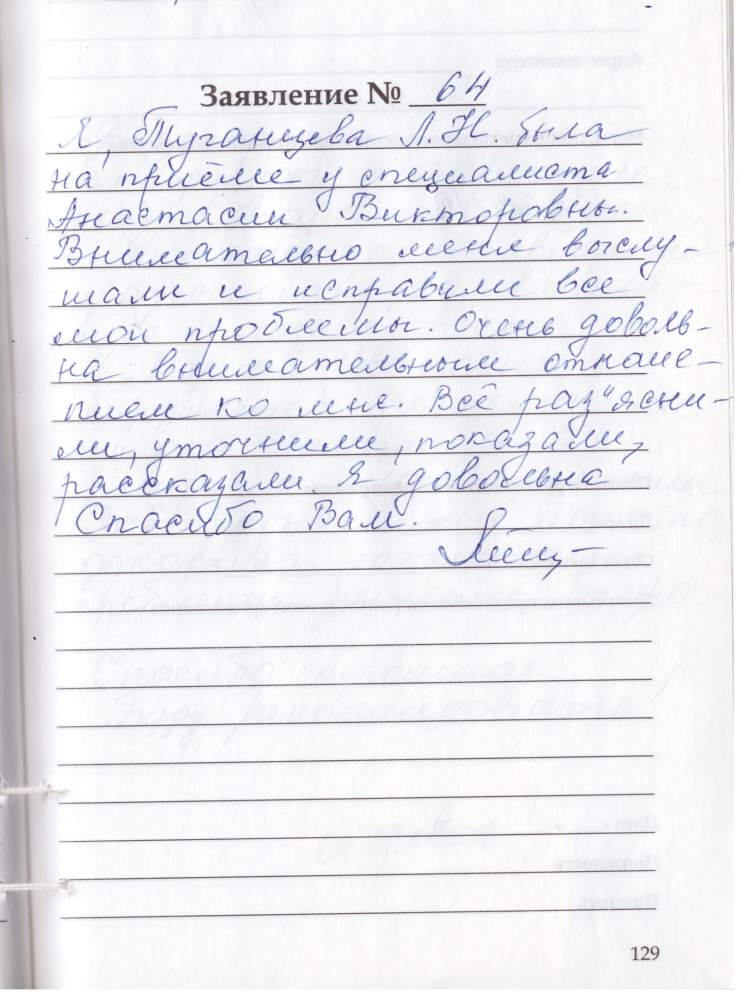 Заявление № 64
Я, Туганцева Л.Н. была
на приёме у специалиста
Анастасии Викторовны.
Внимательно меня выслу-
шали и исправили все
мои проблемы. Очень доволь-
на внимательным отноше-
нием ко мне. Всё раз"ясни-
ли, уточнили, показали,
рассказали. Я довольна
Спасибо Вам.
129